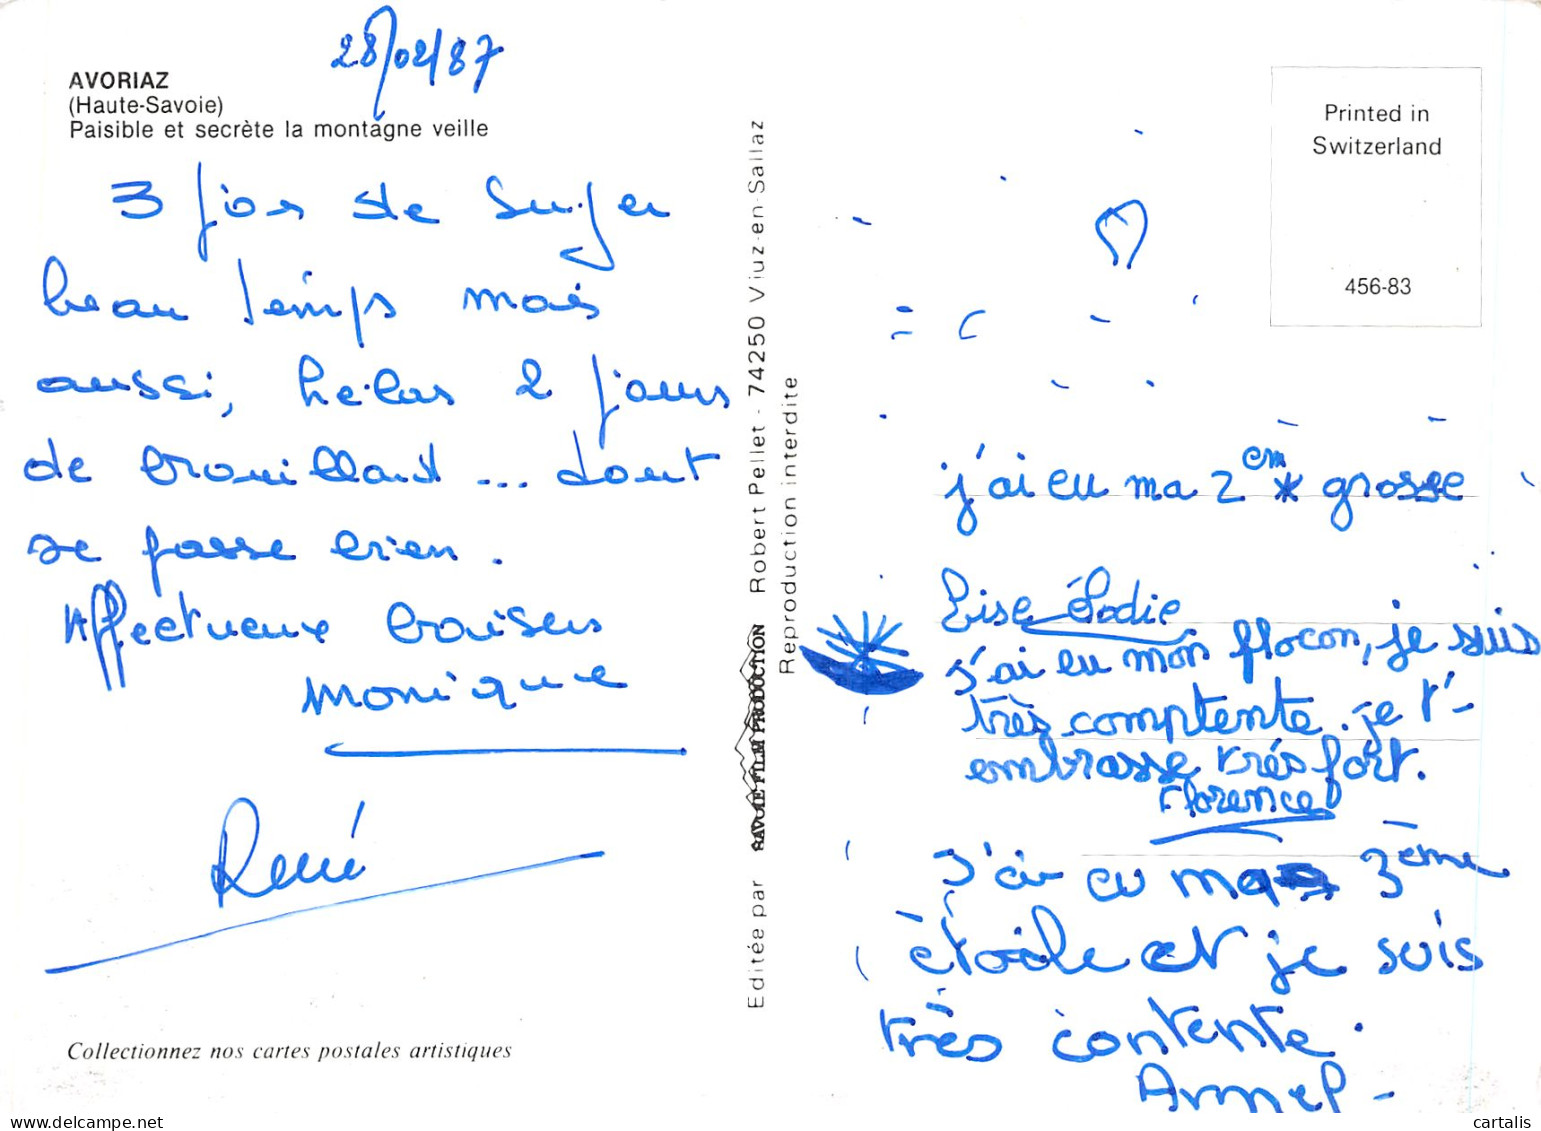 28/02/87
AVORIAZ
(Haute-Savoie)
Paisible et secrète la montagne veille
3 jios de
beau temps mais
aussi, hélas 2 jours
de brouillard ... dont
se passe bien.
Affectueux baisers
Monique
René
Collectionnez nos cartes postales artistiques
Editée par SAVOIE FILM PRODUCTION Robert Pellet - 74250 Viuz-en-Sallaz
Reproduction interdite
Printed in
Switzerland
456-83
j'ai eu ma 2em * grosse
Lise-élodie
J'ai eu mon flocon, je suis
très comptente. je t'-
embrasse trés fort.
Florence
J'ai eu ma 3ème
étoile et je suis
très contente.
Armel -
cartalis